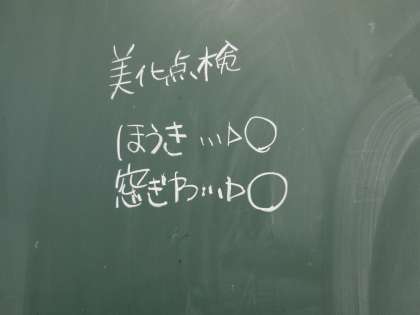 美化点検
ほうき…▷○
窓ぎわ…▷○